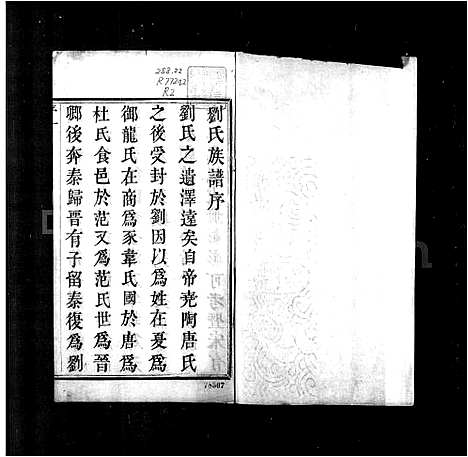 劉氏族譜序
劉氏之遺澤遠矣自帝堯陶唐氏
之後受封於劉因以爲姓在夏爲
御龍氏在商爲豕韋氏國於唐爲
杜氏食邑於范又爲范氏世爲晉
卿後奔秦歸晉有子留秦復爲劉
序
一
258.22
R77242
R2
78507